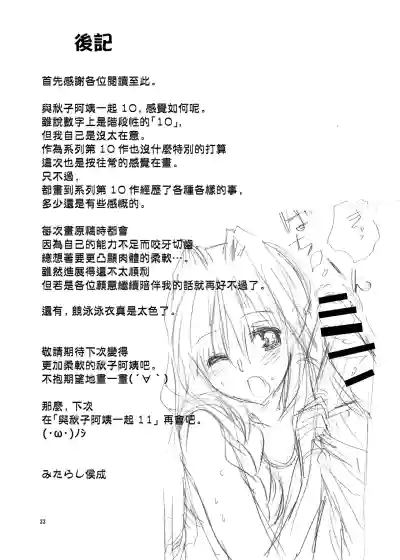 後記
首先感謝各位閱讀至此。
與秋子阿姨一起 10，感覺如何呢。
雖說數字上是階段性的「10」，
但我自己是沒太在意。
作為系列第 10 作也沒什麼特別的打算
這次也是按往常的感覺在畫。
只不過，
都畫到系列第 10 作經歷了各種各樣的事，
多少還是有些感概的。
每次畫原稿時都會
因為自己的能力不足而咬牙切齒，
總想著要更凸顯肉體的柔軟…。
雖然進展得還不太順利
但若是各位願意繼續陪伴我的話就再好不過了。
還有，競泳泳衣真是太色了。
敬請期待下次變得
更加柔軟的秋子阿姨吧。
不抱期望地畫一畫(´∀｀)
那麼，下次
在「與秋子阿姨一起 11」再會吧。
(･ω･)ノｼ
みたらし侯成
33